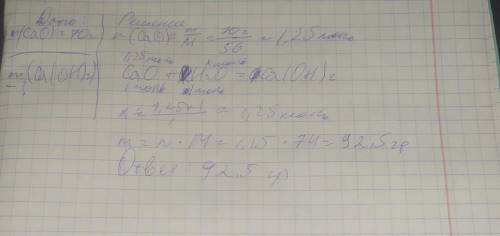 Дано:
m(CaO) = 70г
m(Ca(OH)2)
Решение
n(CaO) = m/M = 70г/56 = 1,25 моль
1,25 моль x моль
CaO + H2O = Ca(OH)2
1 моль 1 моль
x = 1,25·1/1 = 1,25 моль
m = n · M = 1,25 · 74 = 92,5 гр
Ответ 92,5 гр